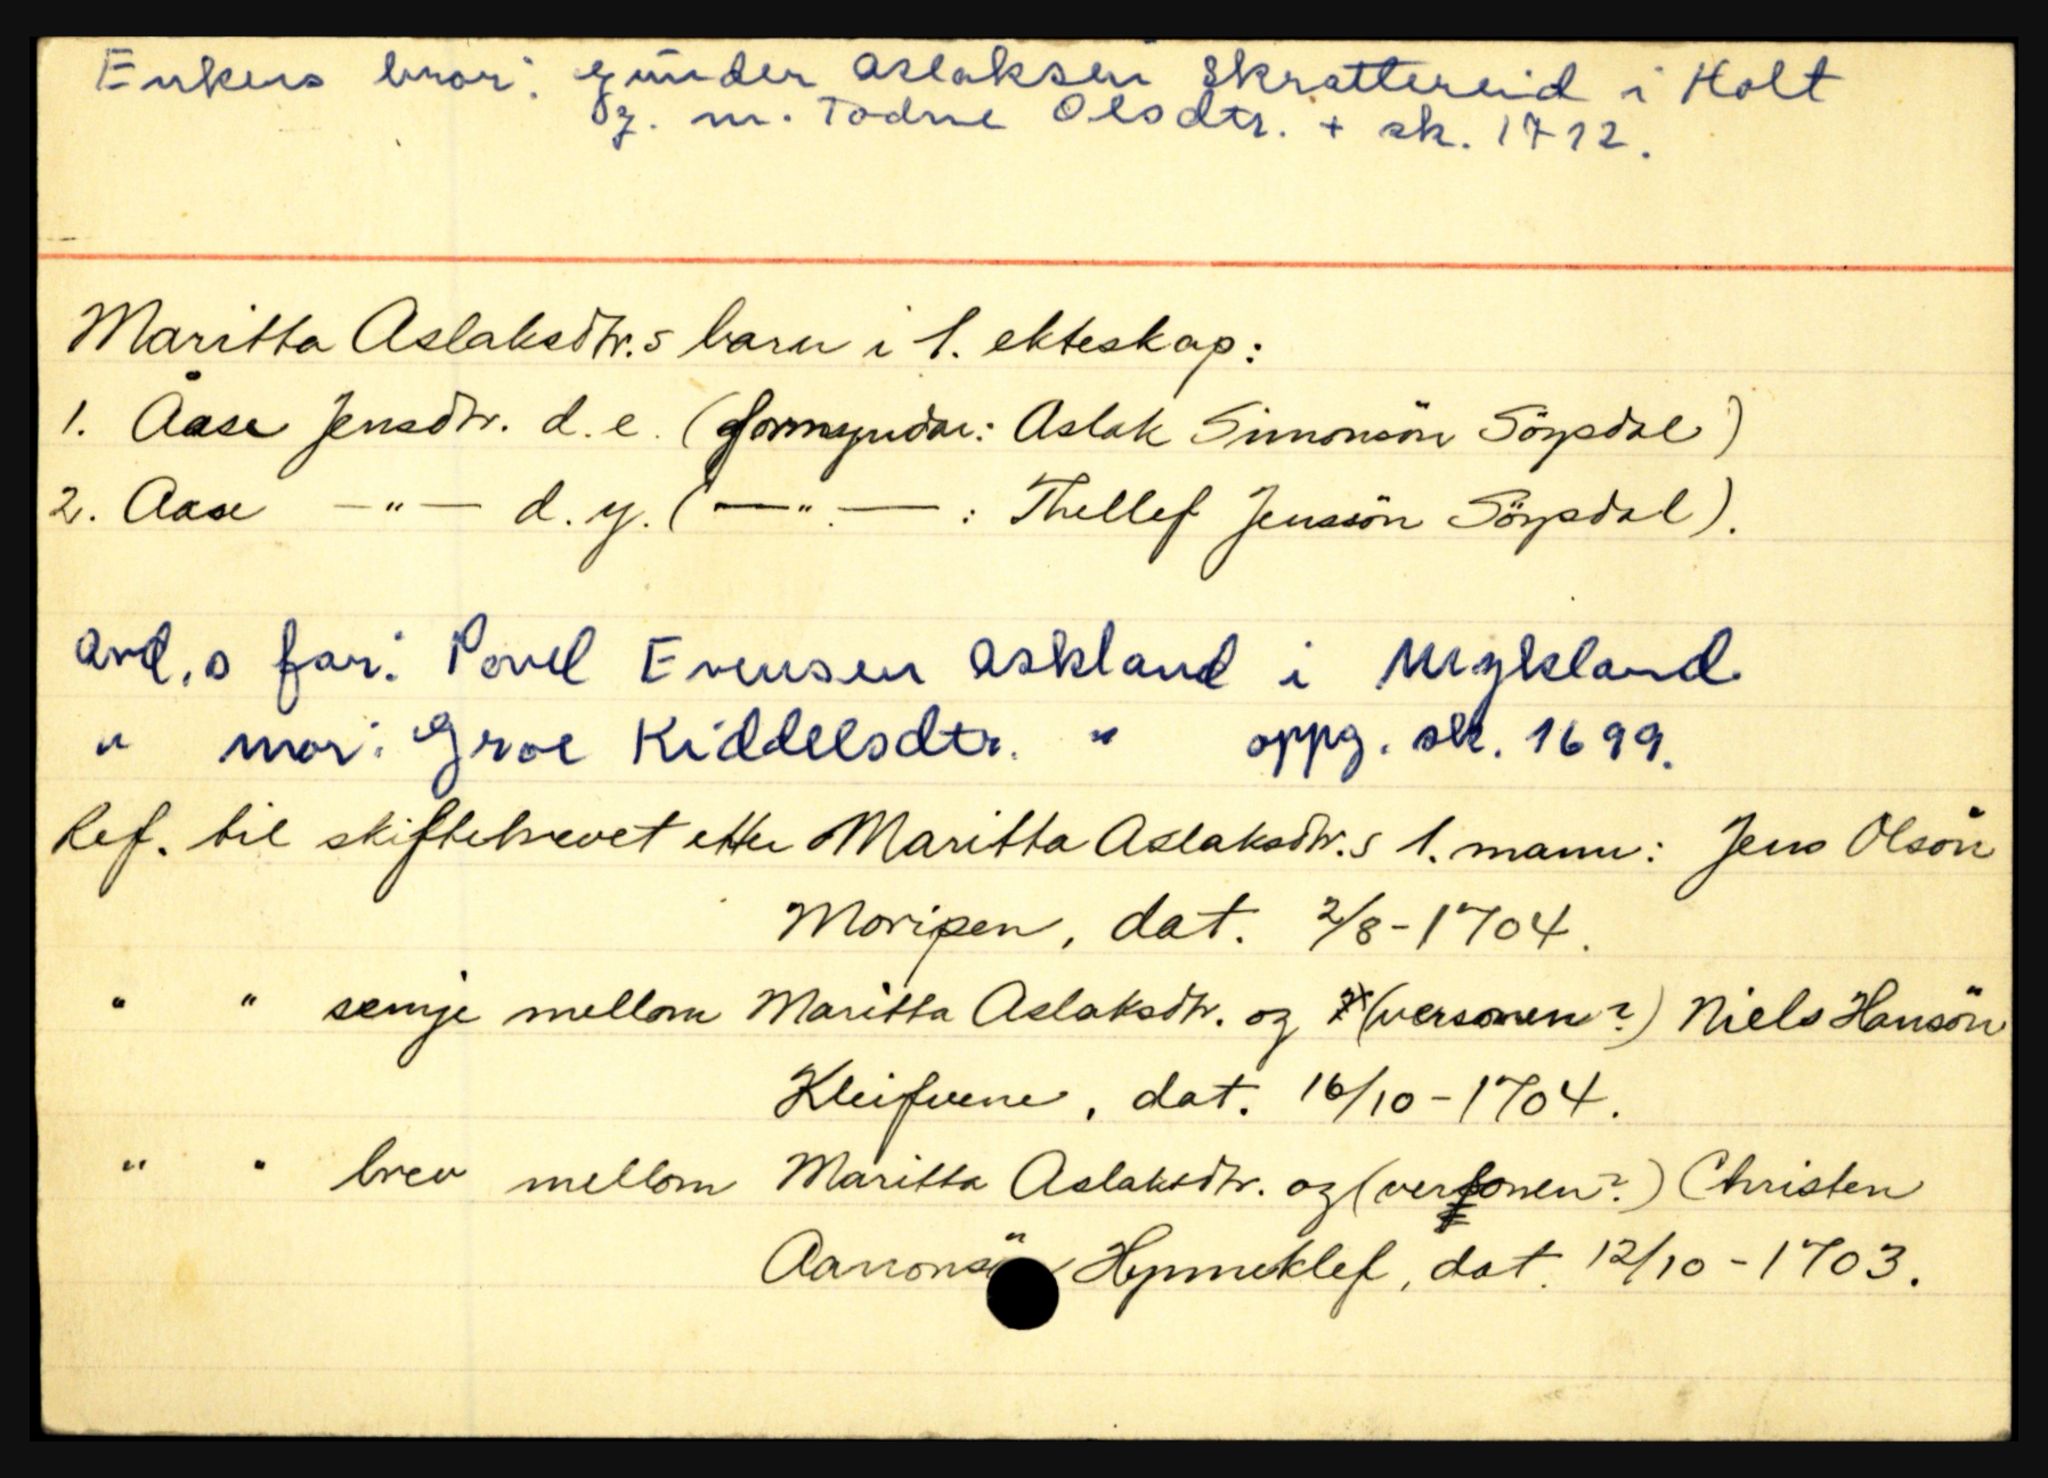 Enkens bror: Gunder Aslaksen Skrattereid i Holt
g. m. Todne Olsdtr. + sk. 1712.
Maritta Aslaksdtr.s barn i 1. ekteskap:
1. Åase Jensdtr. d. e. (formyndar: Aslak Simonsön Sögsdal)
2. Aase —"— d. y. (—"—: Thellef Jenssön Sögsdal).
Avd.s far: Povel Evensen Askland i Mykland
" mor: Groe Kiddelsdtr. " oppg. sk. 1699.
Ref. til skiftebrevet etter Maritta Aslaksdtr.s 1. mann: Jens Olsön
Moripen, dat. 2/8-1704.
" " semje mellom Maritta Aslaksdtr. og (versonen?) Niels Hansön
Kleifvene, dat. 16/10-1704.
" " brev mellom Maritta Aslaksdtr. og (versonen?) Christen
Aanonsön Hynneklef, dat. 12/10-1703.